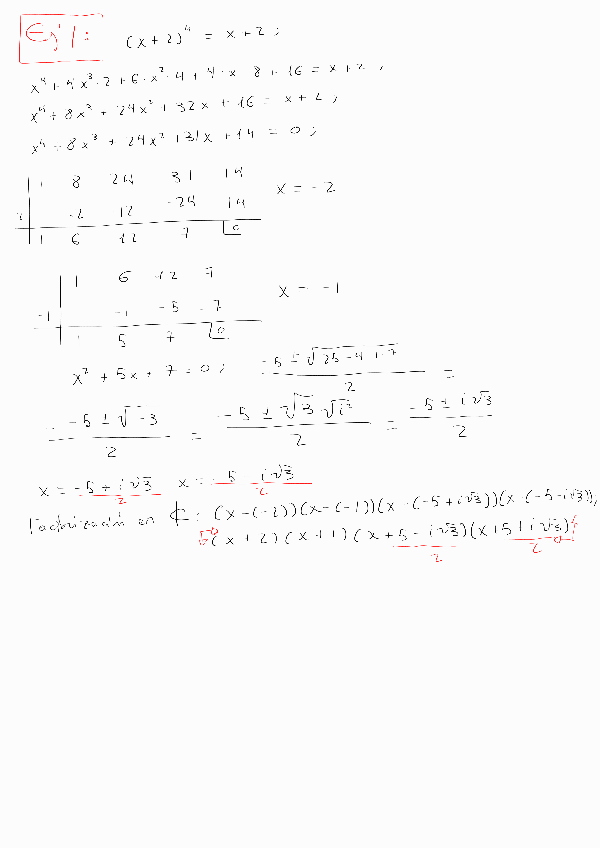 Ej 1: (x+2)⁴ = x+2;
x⁴ + 4x³·2 + 6·x²·4 + 4·x·8 + 16 = x+2;
x⁴ + 8x³ + 24x² + 32x + 16 = x+2;
x⁴ + 8x³ + 24x² + 31x + 14 = 0;
1 8 24 31 14
-2 -2 -12 -24 -14 x = -2
1 6 12 7 0
1 6 12 7
-1 -1 -5 -7 x = -1
1 5 7 0
x² + 5x + 7 = 0; (-5 ± √(25-4·1·7))/2 =
= (-5 ± √-3)/2 = (-5 ± √3 √i²)/2 = (-5 ± i√3)/2
x = (-5 + i√3)/2 x = (-5 - i√3)/2
Factorización en ℂ: (x-(-2))(x-(-1))(x-(-5+i√3))(x-(-5-i√3));
(x+2)(x+1)(x+(5-i√3)/2)(x+(5+i√3)/2)